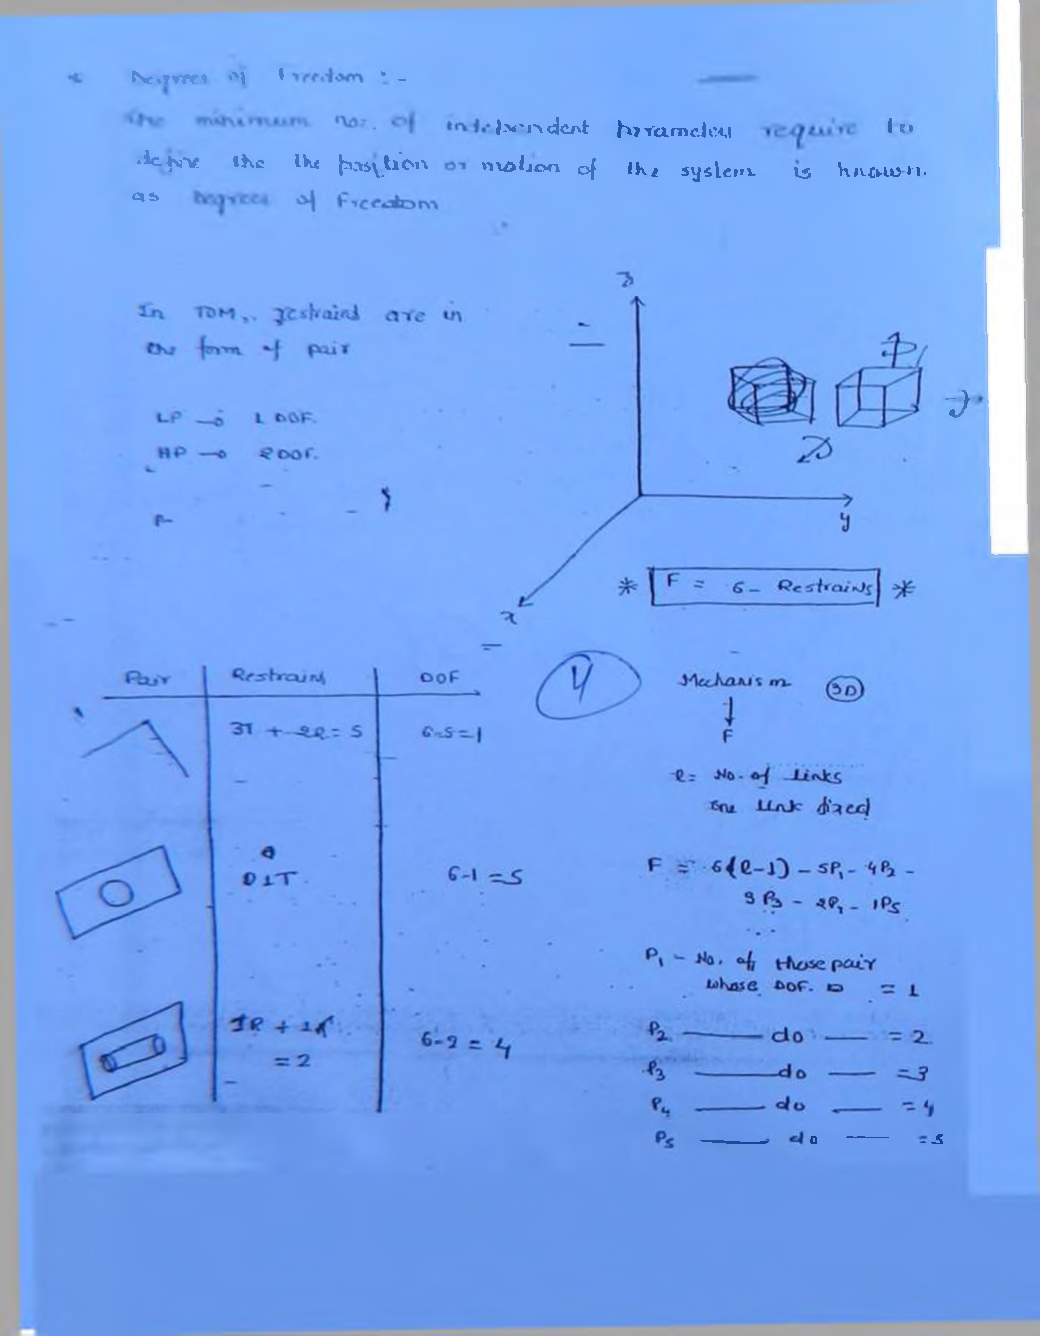 * Degrees of Freedom :-
The minimum no. of independent parameter require to
define the the position or motion of the system is known.
as Degrees of Freedom
In TOM, restraint are in
the form of pair
LP → 1 DOF.
HP → 2 DOF.
P-
z
y
x
* F = 6 - Restrains *
Pair Restrains DOF
3T + 2R = 5 6-5=1
01T 6-1=5
1R + 1T
= 2 6-2 = 4
4
Mechanism 3D
F
l = No. of links
one link fixed
F = 6(l-1) - 5P1 - 4P2 -
3P3 - 2P4 - 1P5
P1 - No. of those pair
whose DOF. = 1
P2 —— do —— = 2
P3 —— do —— = 3
P4 —— do —— = 4
P5 —— do —— = 5